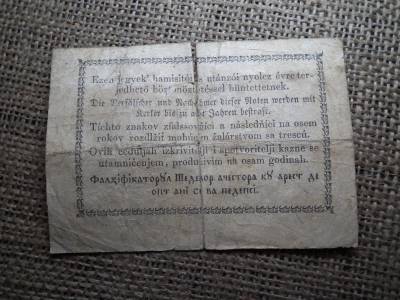 Ezen jegyek' hamisitói utánzói nyolcz évre ter-
jedhető börtönnel büntettetnek.
Die Verfälscher und Nachahmer dieser Noten werden mit
Kerker bis zu acht Jahren bestraft.
Tíchto znakov zfalssovácí a následnící na osem
rokov rozdlžit mohúcim žalárstvom sa trescú.
Ovih cedujah izkrivitelji i spotvoritelji kazne se
utamničenjem, produživim na osam godinah.
Фалхіфікаторул ші ачестора ку арест де
опт ані се ва педепсі.